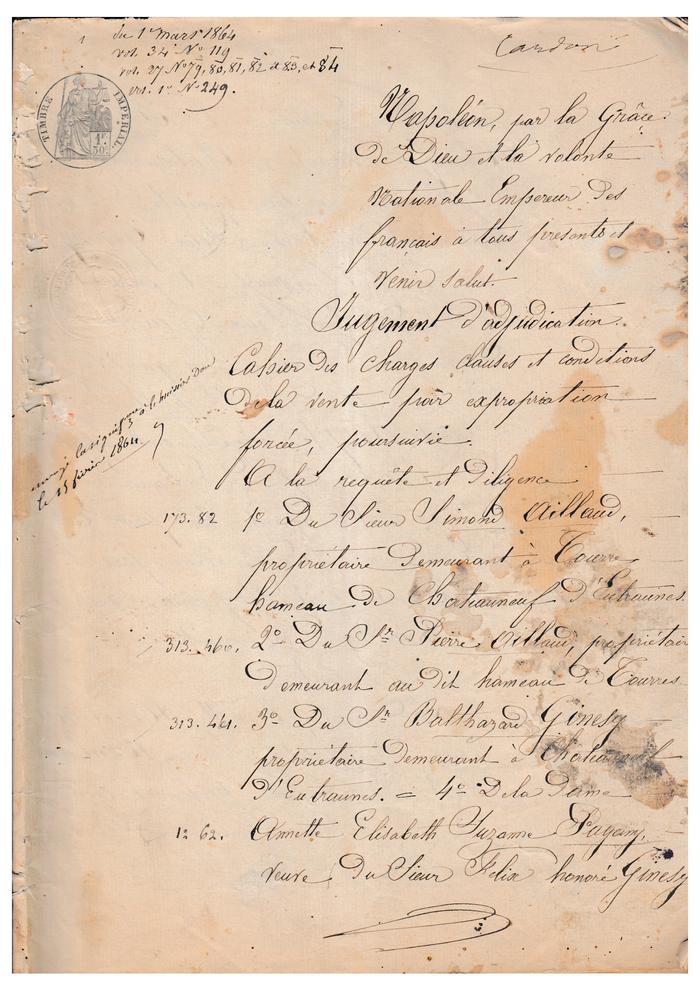 du 1er mars 1864
vol. 34 No 119
vol. 27 No 79, 80, 81, 82 et 83, et 84
No 249.
Cardon
TIMBRE IMPERIAL
1F.
50c.
Napoléon, par la Grâce
de Dieu et la volonté
Nationale Empereur des
français à tous présents et
venir salut.
Jugement d'adjudication.
Cahier des charges clauses et conditions
de la vente par expropriation
forcée, poursuivie.
le 15 février 1864.
A la requête et diligence
173. 82 1o Du Sieur Simond Aillaud,
propriétaire demeurant à Tourre
hameau de Chateauneuf d'Entraunes.
313. 460. 2o Du Sr Pierre Aillaud, propriétair
demeurant au dit hameau de Tourres
313. 461. 3o Du Sr Balthazard Ginesy
propriétaire demeurant à Chateauneuf
d'Entraunes. = 4o De la Dame
12 62. Annette Elisabeth Suzanne Pagany,
veuve du Sieur Felix honoré Ginesy